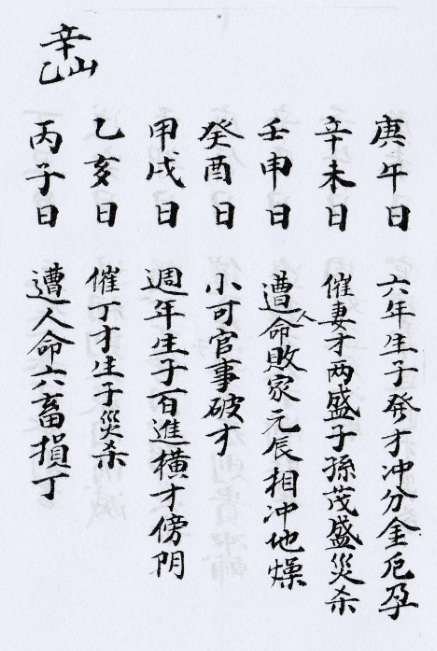 辛山乙
庚午日 六年生子發才冲分金厄孕
辛未日 催妻才两盛子孫茂盛災杀
壬申日 遭人命敗家元辰相冲地燥
癸酉日 小可官事破才
甲戌日 週年生子百進横才傍阴
乙亥日 催丁才生子災杀
丙子日 遭人命六畜損丁